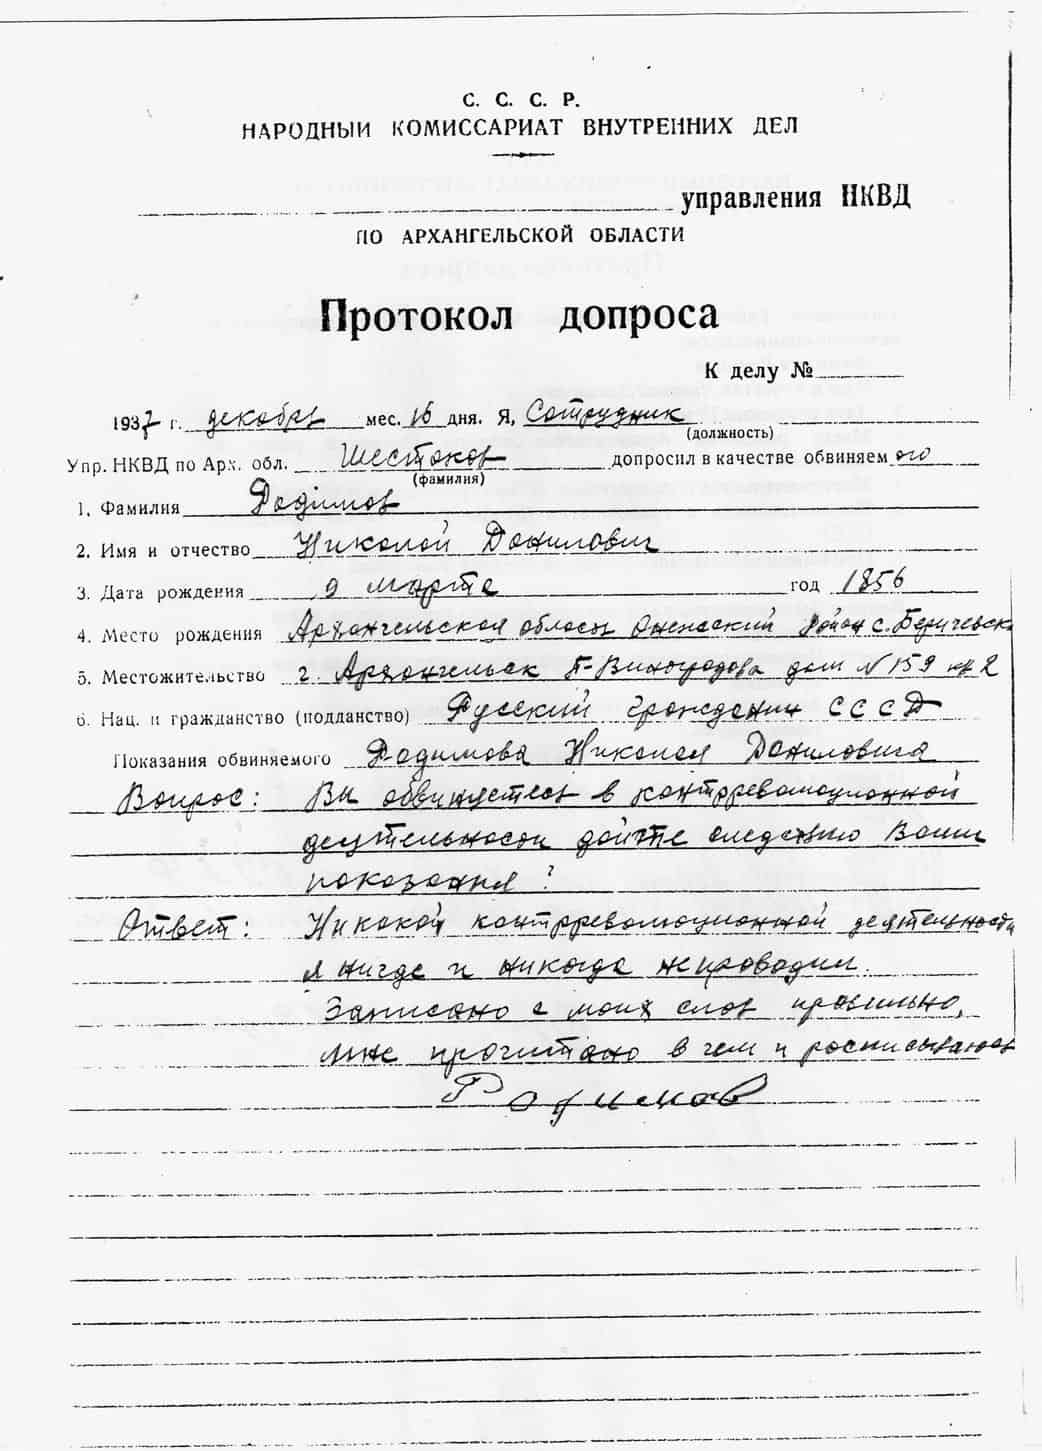 С. С. С. Р.
НАРОДНЫЙ КОМИССАРИАТ ВНУТРЕННИХ ДЕЛ
управления НКВД
ПО АРХАНГЕЛЬСКОЙ ОБЛАСТИ
Протокол допроса
К делу №
1937 г. декабря мес. 16 дня. Я, Сотрудник
(должность)
Упр. НКВД по Арх. обл. Шестаков допросил в качестве обвиняемого
(фамилия)
1. Фамилия Родимов
2. Имя и отчество Николай Данилович
3. Дата рождения 9 марта год 1856
4. Место рождения Архангельская область Онежский район с.
5. Местожительство г. Архангельск П-Виноградова дом № 159 кв 2
6. Нац. и гражданство (подданство) Русский гражданин СССР
Показания обвиняемого Родимова Николая Даниловича
Вопрос: Вы обвиняетесь в контрреволюционной
деятельности дайте следствию Ваши
показания?
Ответ: Никакой контрреволюционной деятельности
я нигде и никогда не проводил.
Записано с моих слов правильно,
мне прочитано в чем и расписываюсь
Родимов